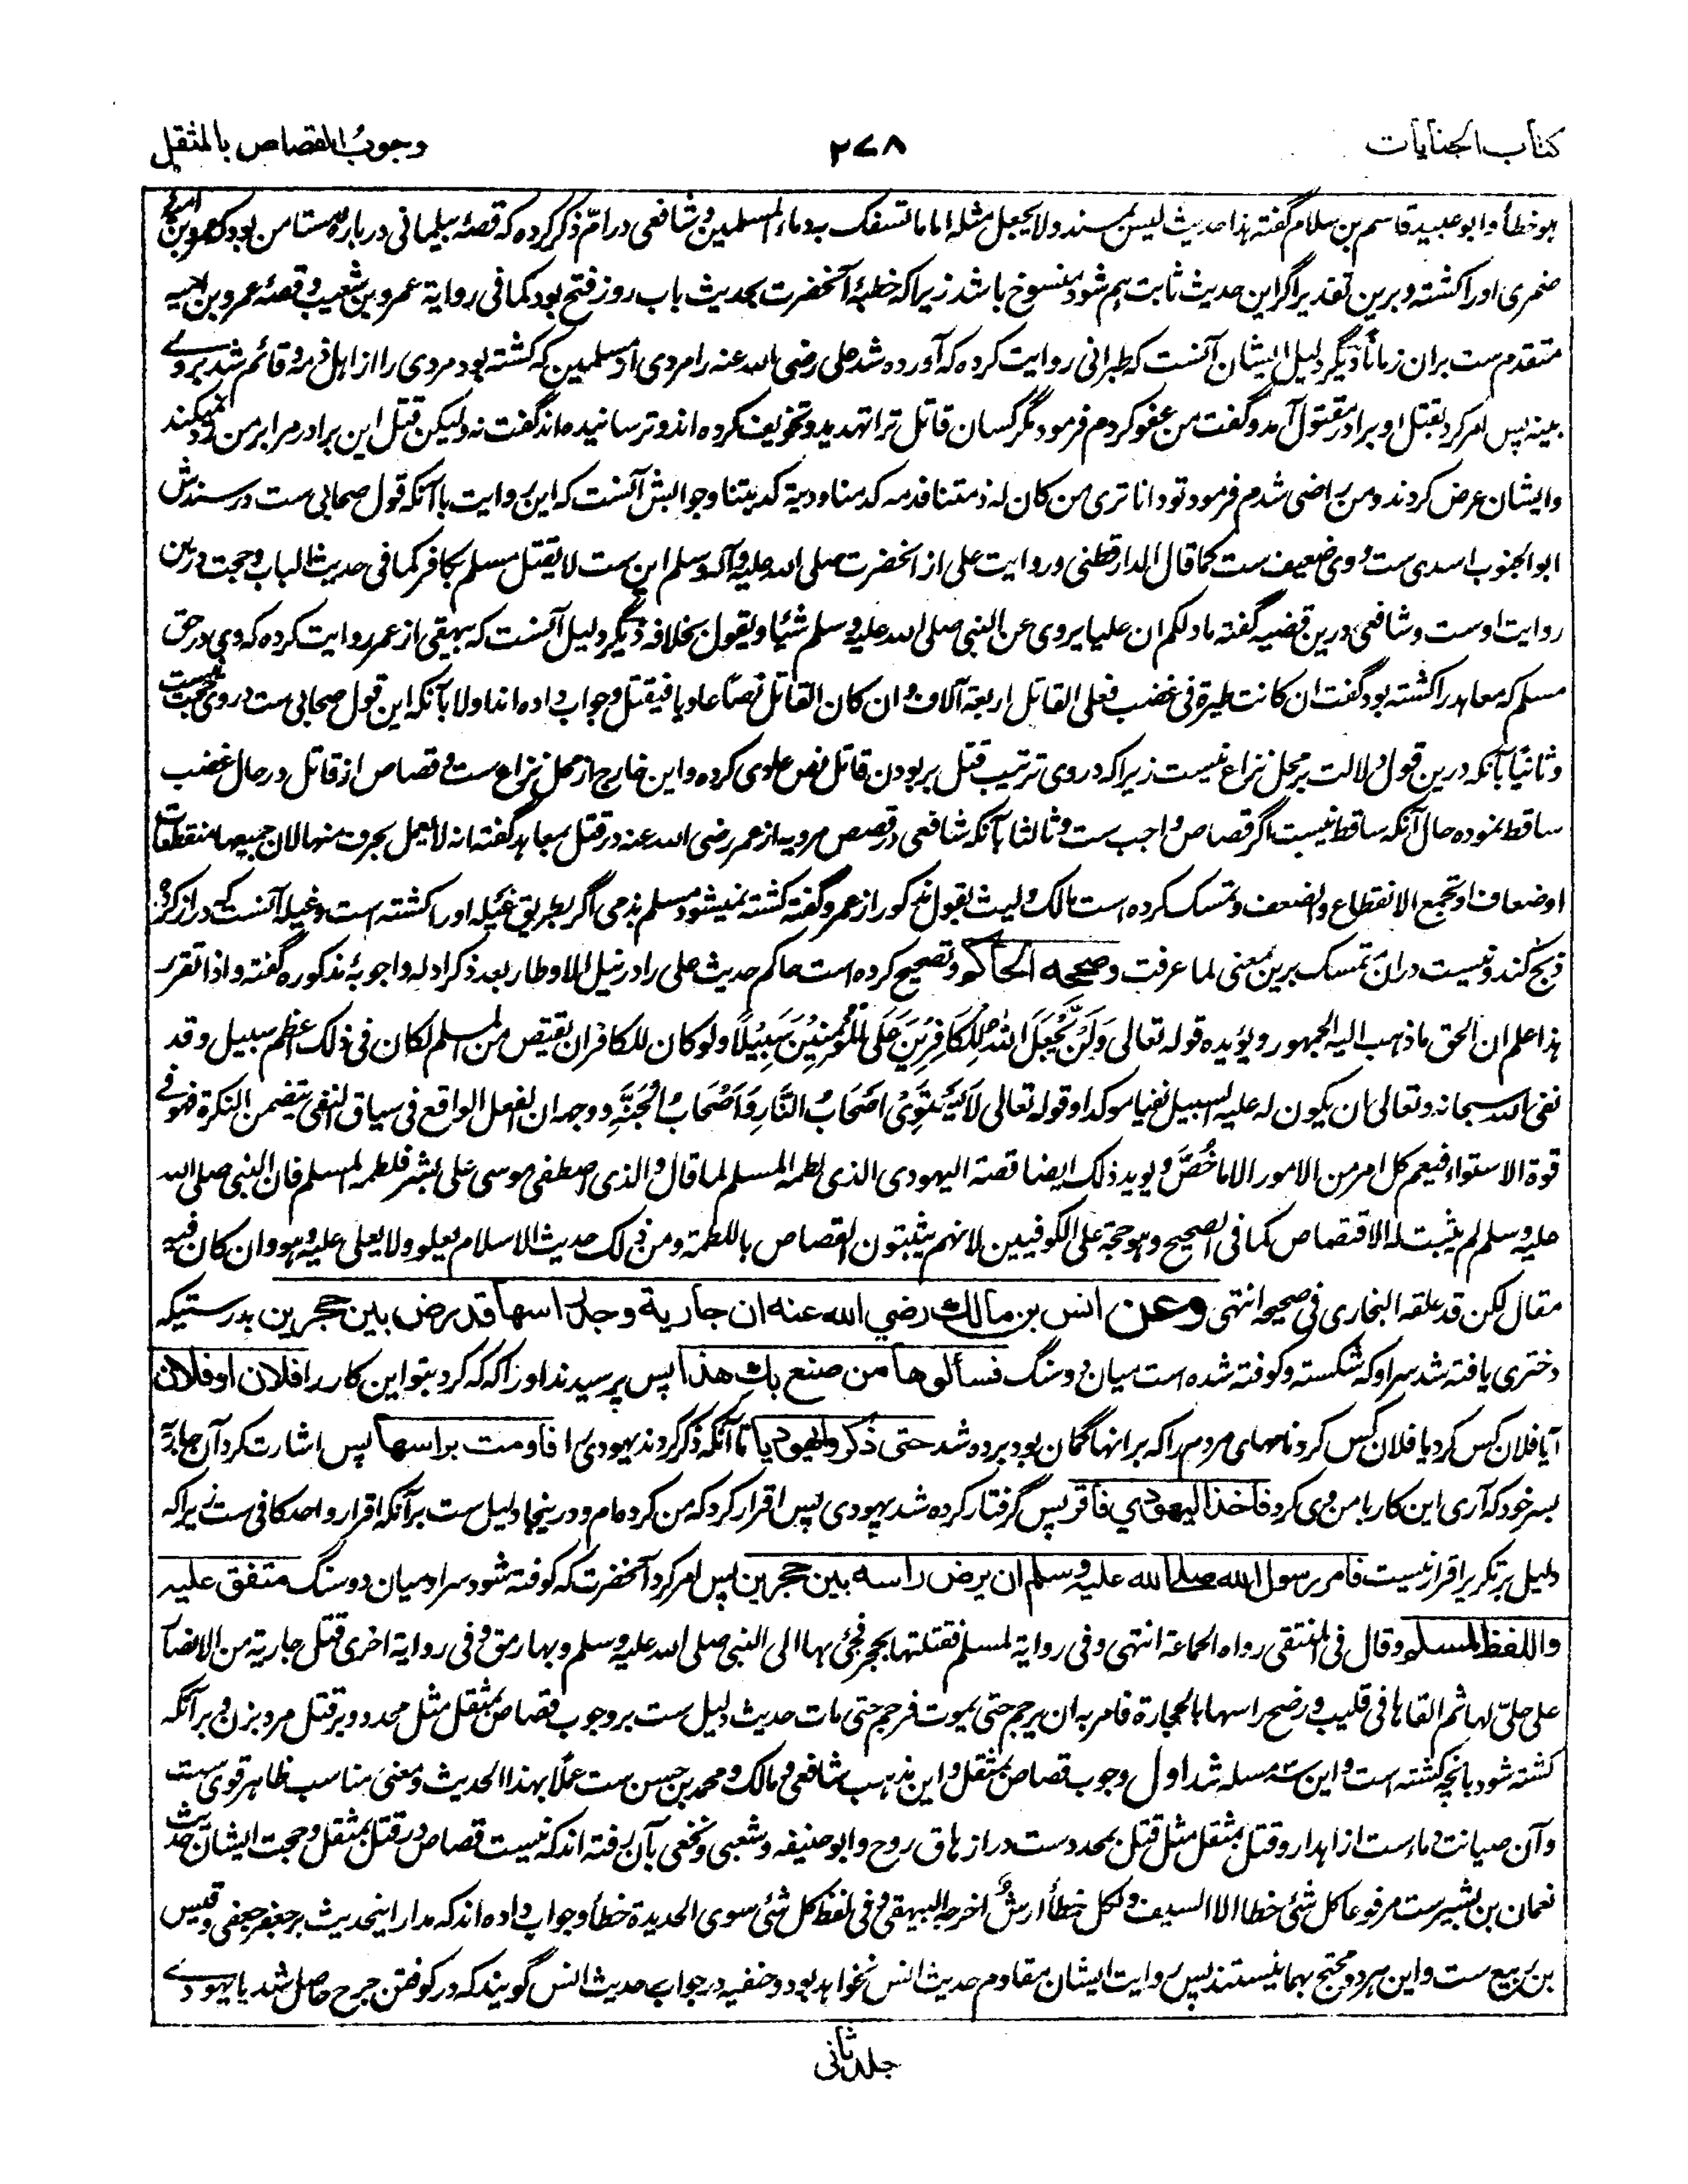 کتاب الجنایات
۲۷۸
وجوب القصاص بالمثقل
ہو خطأ وابو عبید قاسم بن سلام گفتہ ہذا حدیث لیس بمسند ولا یجعل مثلہ اماما تسفک بہ دماء المسلمین و شافعی در ام ذکر کردہ کہ قصۂ بیلمانی دربارہ مستامن بود کہ عمرو بن امیہ
ضمری او را کشتہ و برین تقدیر اگر این حدیث ثابت ہم شود منسوخ باشد زیرا کہ خطبۂ آنحضرت بحدیث باب روز فتح بود کما فی روایة عمرو بن شعیب و قصۂ عمرو بن امیہ
متقدم ست بران زمانا دیگر دلیل ایشان آنست کہ طبرانی روایت کردہ کہ آوردہ شد علی رضی اللہ عنہ را مردی از مسلمین کہ کشتہ بود مردی را از اہل ذمہ و قائم شد بروے
بینہ پس امر کرد بقتل او برادر مقتول آمد و گفت من عفو کردم فرمود مگر کسان قاتل ترا تہدید و تخویف کردہ اند و ترسانیدہ اند گفت نہ ولیکن قتل این برادر مرا بر من رد نمیکند
وایشان عرض کردند و من راضی شدم فرمود تو داناتری من کان لہ ذمتنا فدمہ کدمنا ودیتہ کدیتنا و جوابش آنست کہ این روایت با آنکہ قول صحابی ست در سندش
ابو الجنوب اسدی ست و وی ضعیف ست کما قال الدارقطنی و روایت علی از آنحضرت صلی اللہ علیہ وآلہ وسلم این ست لا یقتل مسلم بکافر کما فی حدیث الباب و حجت درین
روایت اوست و شافعی درین قضیہ گفتہ ما دلکم ان علیا یروی عن النبی صلی اللہ علیہ وسلم شیئا ویقول بخلافہ دیگر دلیل آنست کہ بیہقی از عمر روایت کردہ کہ وی در حق
مسلم کہ معاہد را کشتہ بود گفت ان کانت طیرة فی غضب فعلی القاتل اربعة آلاف وان کان القاتل لصا عادیا فیقتل و جواب دادہ اند اولا بآنکہ این قول صحابی ست و روی حجت نیست
وثانیا بآنکہ درین قول دلالت بر محل نزاع نیست زیرا کہ در وی ترتیب قتل بر بودن قاتل لص عادی کردہ و این خارج از محل نزاع ست و قصاص از قاتل در حال غضب
ساقط نمودہ حال آنکہ ساقط نیست اگر قصاص واجب ست وثالثا بآنکہ شافعی در قصص مرویہ از عمر رضی اللہ عنہ در قتل معاہد گفتہ انہ لا یعمل بحرف منہا لان جمیعہا منقطعات
او ضعاف او تجمع الانقطاع والضعف و تمسک کردہ است مالک و لیث بقول مذکور از عمر و گفتہ کشتہ نمیشود مسلم بذمی اگر بطریق غیلہ او را کشتہ است و غیلہ آنست کہ دراز کردہ
ذبح کند و نیست دران تمسک برین معنی لما عرفت وصححه الحاکم و تصحیح کردہ است حاکم حدیث علی را در نیل الاوطار بعد ذکر ادلہ و اجوبۂ مذکورہ گفتہ واذا تقرر
ہذا علم ان الحق ما ذہب الیہ الجمہور ویؤیدہ قولہ تعالی وَلَنْ يَّجْعَلَ اللهُ لِلْكَافِرِيْنَ عَلَى الْمُؤْمِنِيْنَ سَبِيْلًا ولو کان للکافر ان یقتص من المسلم لکان فی ذلک اعظم سبیل وقد
نفی اللہ سبحانہ وتعالی ان یکون لہ علیہ السبیل نفیا موکدا وقولہ تعالی لَا يَسْتَوِيْ اَصْحَابُ النَّارِ وَاَصْحَابُ الْجَنَّةِ ووجہہ ان الفعل الواقع فی سیاق النفی یتضمن النکرة فہو فے
قوة لا استواء فیعم کل امر من الامور الا ما خُصَّ ویوید ذلک ایضا قصة الیہودی الذی لطمہ المسلم لما قال والذی اصطفی موسی علی البشر فلطمہ المسلم فان النبی صلی اللہ
علیہ وسلم لم یثبت لہ الاقتصاص کما فی الصحیح وہو حجة علی الکوفیین لانہم یثبتون القصاص باللطمة ومن ذلک حدیث الاسلام یعلو ولا یعلی علیہ وہو وان کان فیہ
مقال لکن قد علقہ البخاری فی صحیحہ انتہی وعن انس بن مالك رضي الله عنه ان جارية وجد راسها قد رض بين حجرين بدرستیکہ
دختری یافتہ شد سر او کہ شکستہ و کوفتہ شدہ است میان دو سنگ فسألوها من صنع بك هذا پس پرسیدند او را کہ کہ کرد بتو این کار را فلان او فلان
آیا فلان کس کرد یا فلان کس کرد نامہای مردم را کہ بر انہا گمان بود بردہ شد حتى ذكروا يهوديا تا آنکہ ذکر کردند یہودی را فاومت براسها پس اشارت کرد آن جاریہ
بسر خود کہ آری این کار با من وی کرد فاخذ اليهودي فاقر پس گرفتار کردہ شد یہودی پس اقرار کرد کہ من کردہ ام و درینجا دلیل ست بر آنکہ اقرار واحد کافی ست زیرا کہ
دلیل بر تکریر اقرار نیست فامر رسول الله صلى الله عليه وسلم ان يرض راسه بين حجرين پس امر کرد آنحضرت کہ کوفتہ شود سر او میان دو سنگ متفق عليه
واللفظ لمسلم وقال فی المنتقی رواہ الجماعة انتہی وفی روایة لمسلم فقتلتہا بحجر فجئ بہا الی النبی صلی اللہ علیہ وسلم وبہا رمق وفی روایة اخری قتل جاریة من الانصار
علی حلی لہا ثم القاہا فی قلیب ورضخ راسہا بالحجارة فامر بہ ان یرجم حتی یموت فرجم حتی مات حدیث دلیل ست بر وجوب قصاص بمثقل مثل محدد و بر قتل مرد بزن و بر آنکہ
کشتہ شود بانچہ کشتہ است و این سہ مسلہ شد اول وجوب قصاص بمثقل و این مذہب شافعی و مالک و محمد بن حسن ست عملا بہذا الحدیث و معنی مناسب ظاہر قوی ست
وآن صیانت دماء ست از اہدار و قتل بمثقل مثل قتل بمحدد ست در ازہاق روح و ابو حنیفہ و شعبی و نخعی بآن رفتہ اند کہ نیست قصاص در قتل بمثقل و حجت ایشان حدیث
نعمان بن بشیر ست مرفوعا کل شئ خطا الا السیف ولکل خطأ ارشٌ اخرجہ البیہقی وفی لفظ کل شئ سوی الحدیدة خطأ و جواب دادہ اند کہ مدار اینحدیث بر جعفر جعفی و قیس
بن ربیع ست و این ہر دو محتج بہما نیستند پس روایت ایشان مقاوم حدیث انس نخواہد بود و حنفیہ در جواب حدیث انس گویند کہ در کوفتن جرح حاصل شد یا یہودے
جلد ثانی